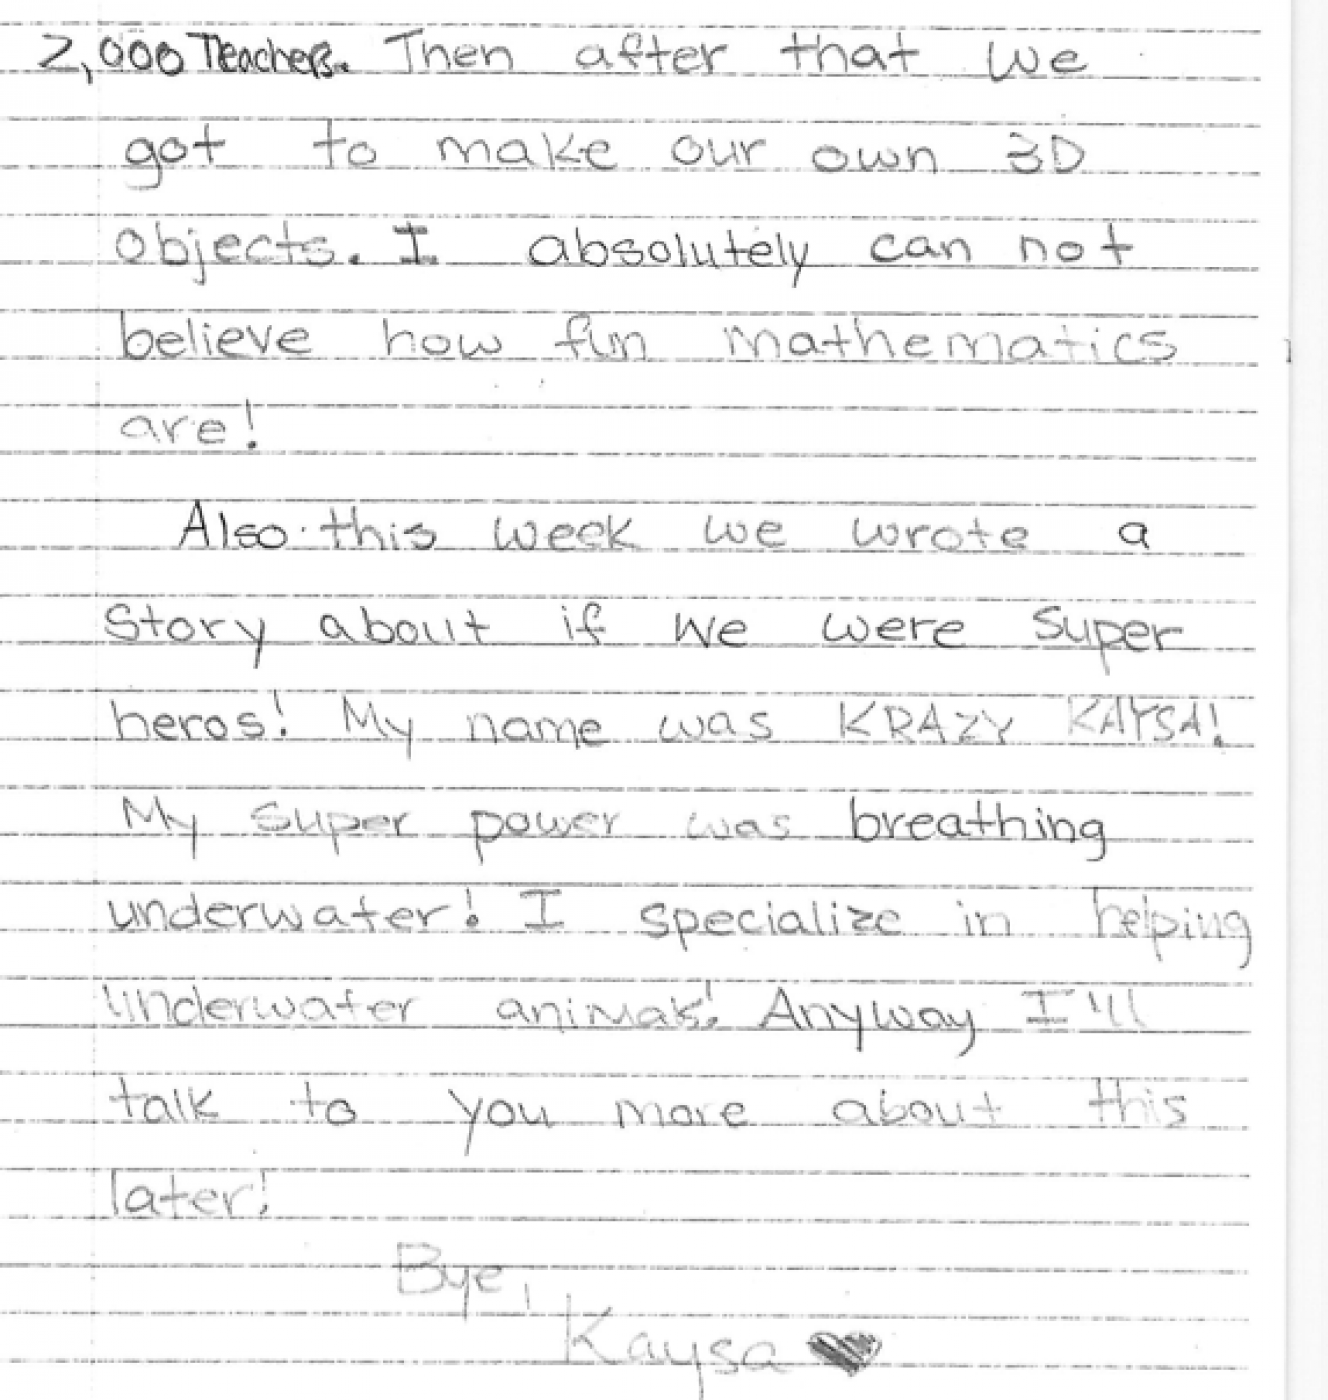 2,000 Teachers. Then after that we
got to make our own 3D
objects. I absolutely can not
believe how fun mathematics
are!
Also this week we wrote a
Story about if we were Super
heros! My name was KRAZY KAYSA!
My super power was breathing
underwater! I specialize in helping
underwater animals! Anyway I'll
talk to you more about this
later!
Bye,
Kaysa ♥